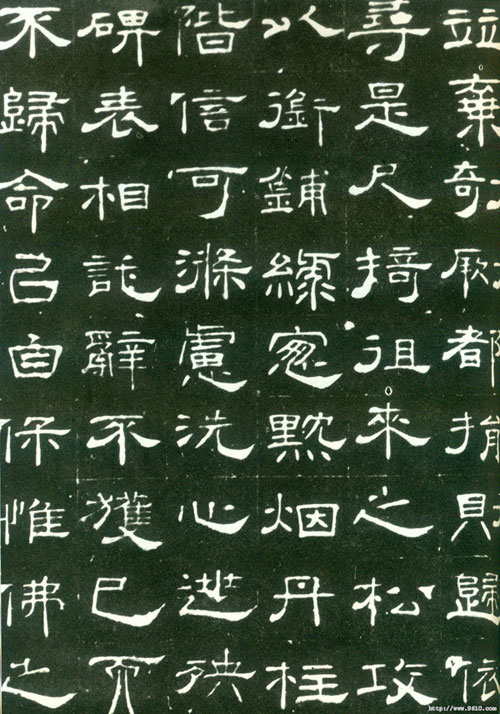 竝棄奇厥都捐貝歸依
尋是尺掎徂來之松攻
以銜鋪綠窓黙烟丹柱
階信可滌慮洗心逃殃
碑表相託辭不獲已而
不歸命己自保惟佛之
http://www.9610.com